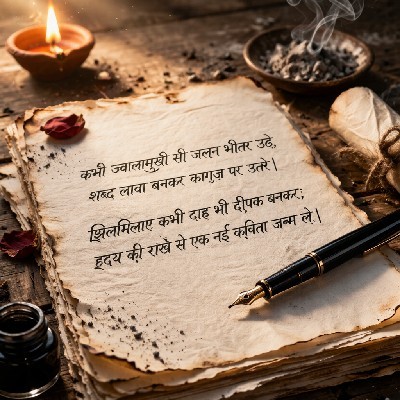 कभी ज्वालामुखी सी जलन भीतर उठे,
शब्द लावा बनकर कागज़ पर उतरे।
झिलमिलाए कभी दाह भी दीपक बनकर;
हृदय की राखे से एक नई कविता जन्म ले।